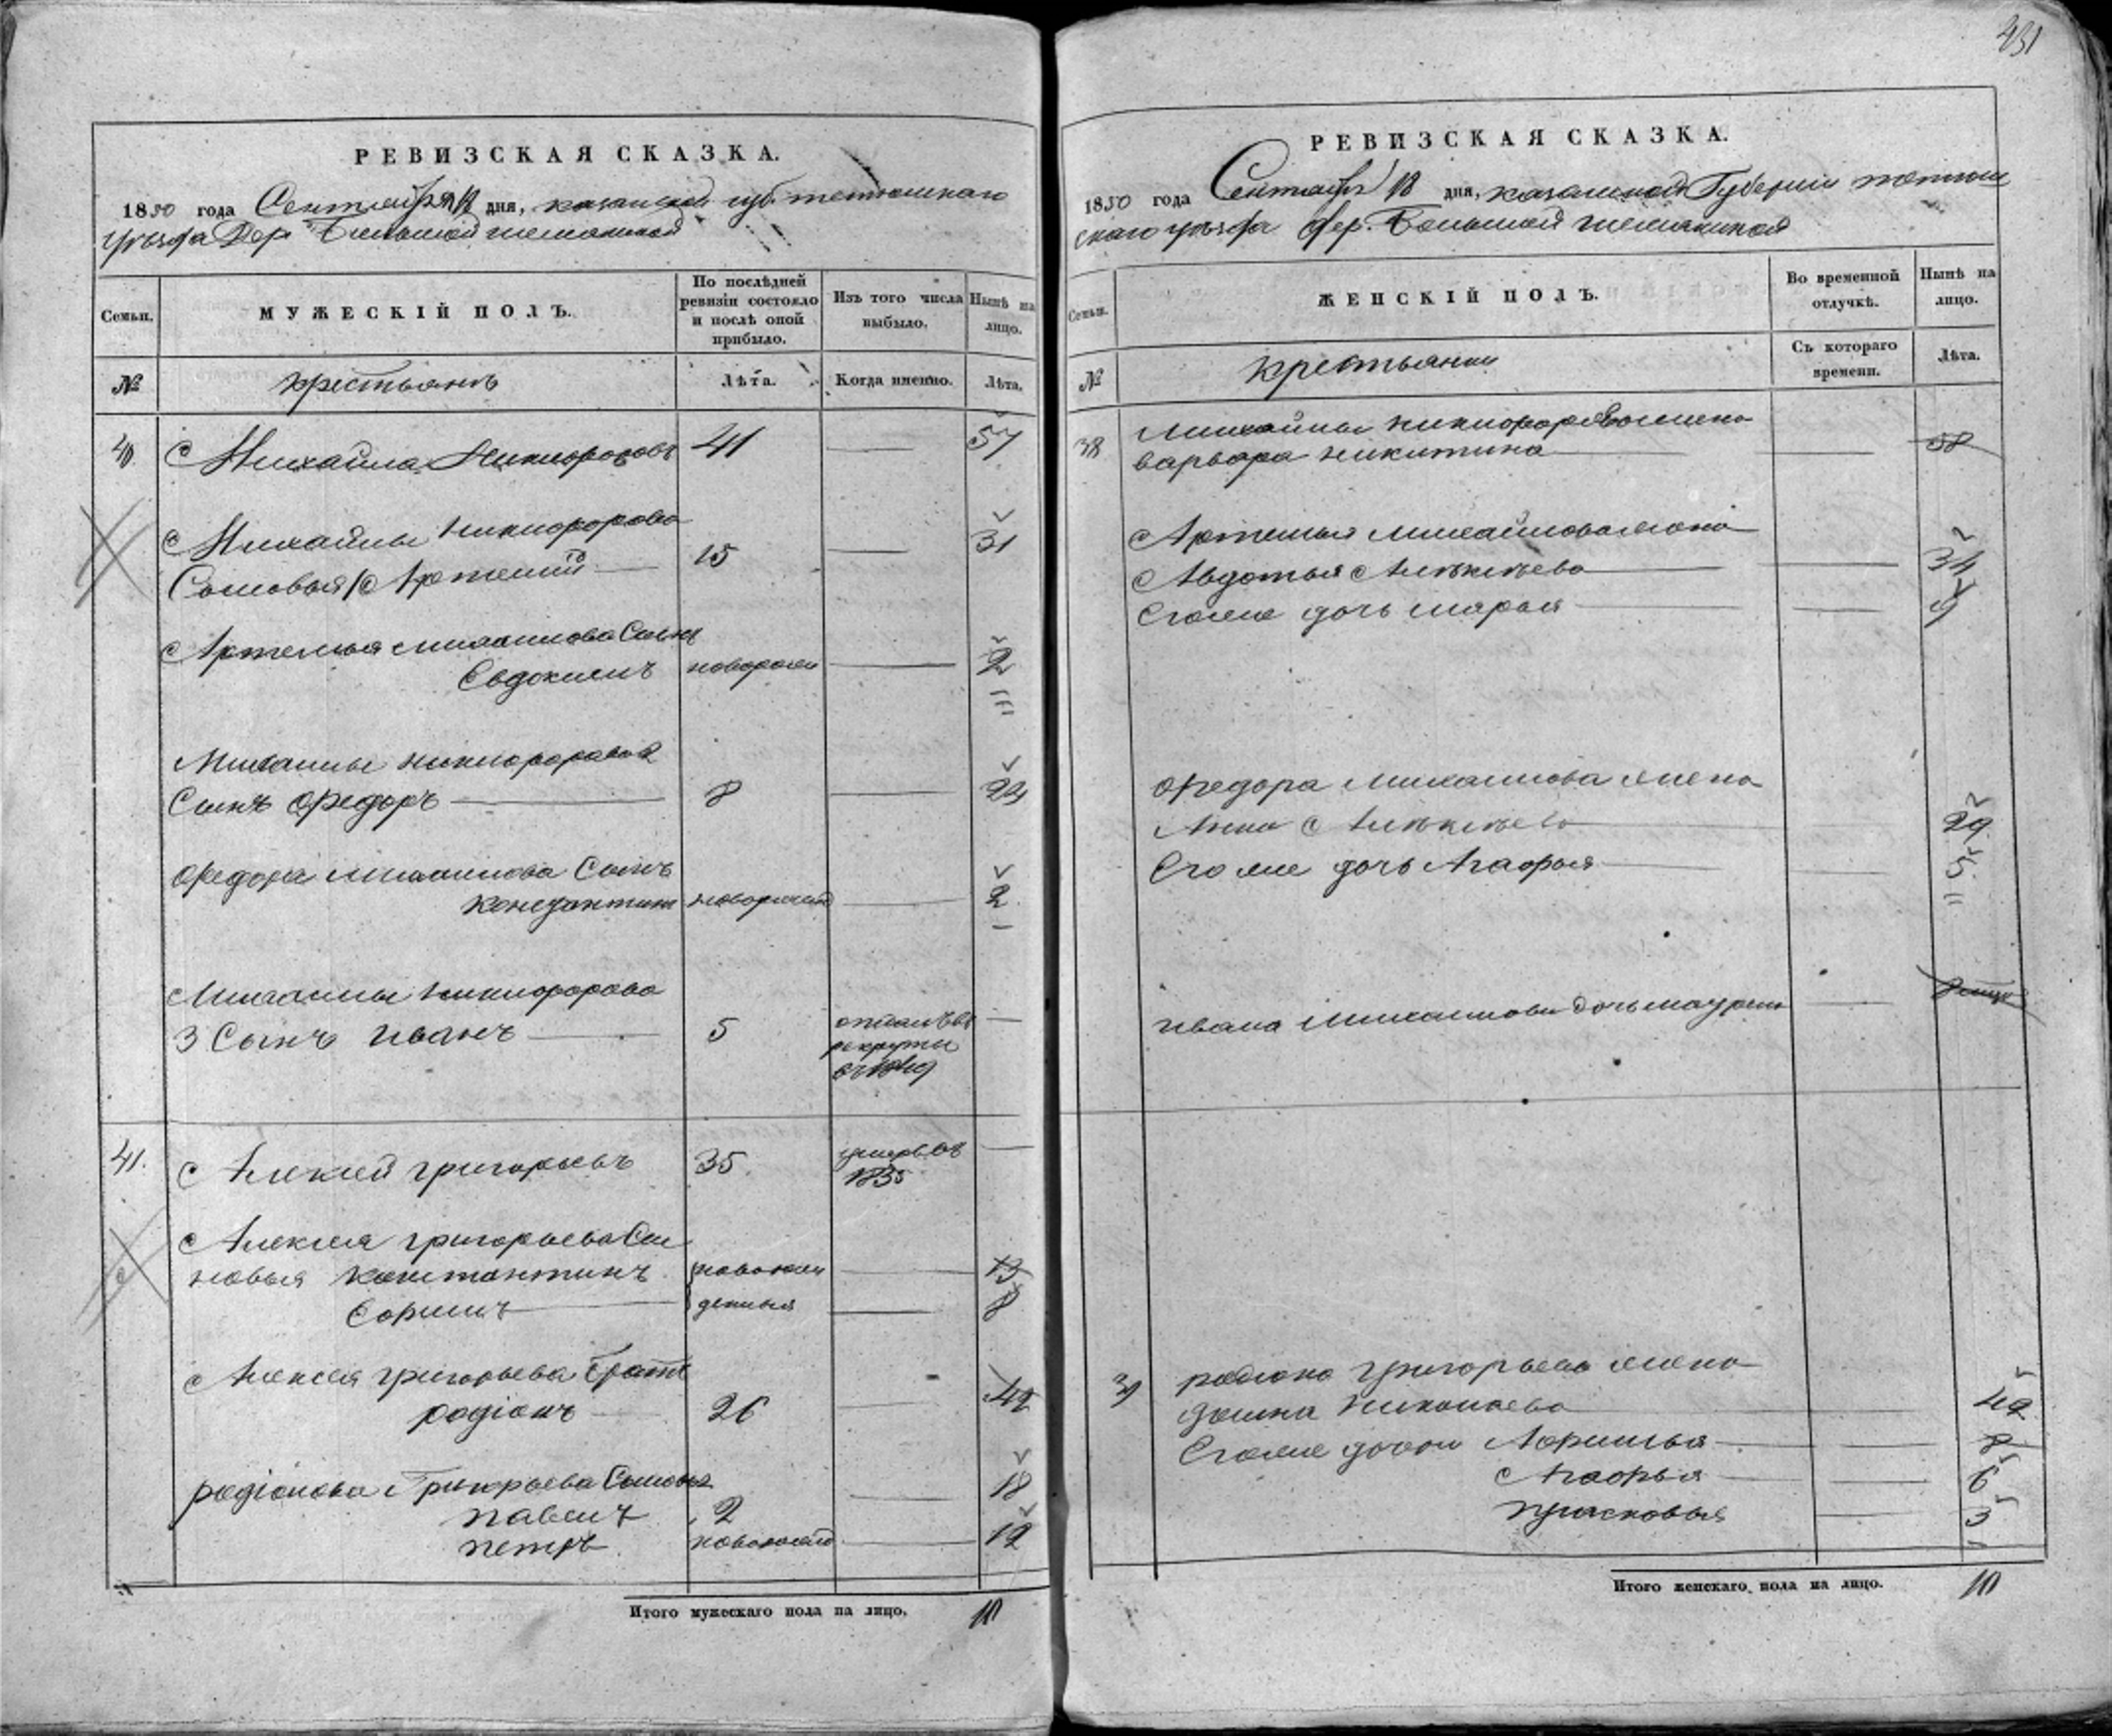 431
РЕВИЗСКАЯ СКАЗКА.
1850 года Сентября 18 дня, казанской губ. тетюшскаго
уѣзда Дер. Большой шемякиной
Семьи.
МУЖЕСКІЙ ПОЛЪ.
По послѣдней ревизіи состояло и послѣ оной прибыло.
Изъ того числа выбыло.
Нынѣ на лицо.
№
крестьянъ
Лѣта.
Когда именно.
Лѣта.
40. Михайла Никифоровъ 41 57
Михайлы Никифорова
Сыновья Артемій 15 31
Артемья михайлова Сынъ
Евдокимъ новорожд 2
Михайлы никифорова 2
Сынъ Федоръ 8 24
Федора михайлова Сынъ
Констянтинъ новорожден 2
Михайлы никифорова
3 Сынъ иванъ 5 отданъ въ
рекруты
41. Алексей григорьевъ 35 умеръ въ
1835
Алексея григорьева Сы
новья Константинъ новорож 13
Ефимъ денныя 8
Алексея григорьева братъ
родіонъ 26 42
родіонова Григорьева Сыновья 18
павелъ 2
петръ новорожд 12
Итого мужескаго пола на лицо. 10
РЕВИЗСКАЯ СКАЗКА.
1850 года Сентября 18 дня, казанской Губерніи тетюш
скаго уѣзда дер. Большой шемякиной
Семьи.
ЖЕНСКІЙ ПОЛЪ.
Во временной отлучкѣ.
Нынѣ на лицо.
№
крестьянки
Съ котораго времени.
Лѣта.
38 Михайлы никифорова жена
варвара никитина 58
Артемья михайлова жена
Авдотья Алексѣева 34
Егоже дочь марья 9
Федора михайлова жена
Анна Алексѣева 29
Егоже дочь Агафья 5
ивана михайлова дочь
39 родіона григорьева жена
Николаева 42
Егоже дочери Афимья 8
Агафья 6
прасковья 3
Итого женскаго пола на лицо. 10